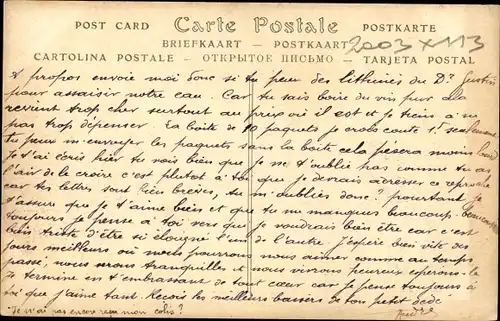 POST CARD Carte Postale POSTKARTE
BRIEFKAART — POSTKAART
2003 X 113
CARTOLINA POSTALE — ОТКРЫТОЕ ПИСЬМО — TARJETA POSTAL
A propos envoie moi donc si tu peux des lithinés du Dr Gustin
pour assaisir notre eau. Car tu sais boire du vin pur ça
revient trop cher surtout au prix où il est et je tiens à ne
pas trop dépenser. La boîte de 10 paquets je crois coute 1f seulement
Tu peux m'envoyer les paquets sans la boite cela pèsera moins lourd
Je t'ai écris hier tu vois bien que je ne t'oublie pas comme tu as
l'air de le croire c'est plutôt à toi que je devrais adresser ce reproche
car tes lettres sont bien brèves, tu m'oublies donc? pourtant je
t'assure que je t'aime bien et que tu me manques beaucoup, beaucoup
toujours je pense à toi vers que je voudrais bien être car c'est
bien triste d'être si éloigné l'un de l'autre. J'espère bien vite des
jours meilleurs où nous pourrons nous aimer comme au temps
passé, nous serons tranquilles et nous vivrons heureux espérons-le
Je termine en t'embrassant de tout cœur car je pense toujours à
toi que j'aime tant. Reçois les meilleurs baisers de ton petit dédé
André
Je n'ai pas encore reçu mon colis?